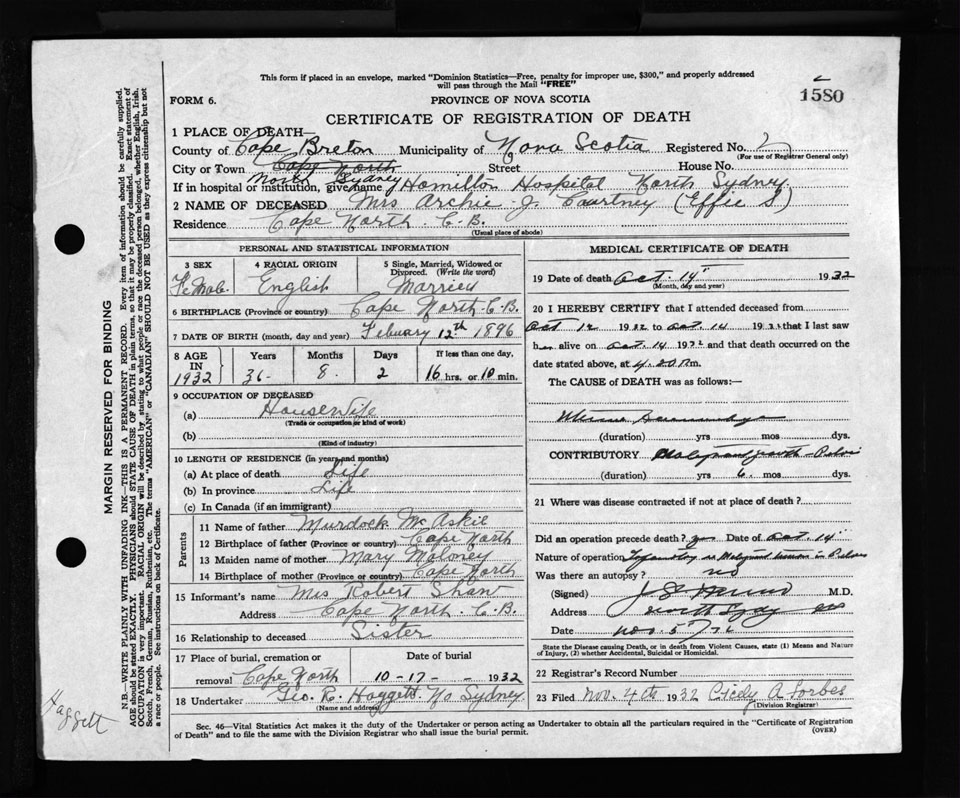 This form if placed in an envelope, marked "Dominion Statistics—Free, penalty for improper use, $300," and properly addressed
will pass through the Mail "FREE"
1580
FORM 6.
PROVINCE OF NOVA SCOTIA
CERTIFICATE OF REGISTRATION OF DEATH
1 PLACE OF DEATH—
County of Cape Breton Municipality of Nova Scotia Registered No. 2
(For use of Registrar General only)
City or Town Cape North Street House No.
North Sydney
If in hospital or institution, give name Hamilton Hospital North Sydney.
2 NAME OF DECEASED Mrs Archie J. Courtney (Effie S)
Residence Cape North C.B.
(Usual place of abode)
PERSONAL AND STATISTICAL INFORMATION
3 SEX 4 RACIAL ORIGIN 5 Single, Married, Widowed or Divorced. (Write the word)
Female. English Married
6 BIRTHPLACE (Province or country) Cape North C.B.
7 DATE OF BIRTH (month, day and year) Febuary 12th 1896
8 AGE IN 1932 Years Months Days If less than one day,
36 8 2 16 hrs. or 10 min.
9 OCCUPATION OF DECEASED
(a) Housewife
(Trade or occupation or kind of work)
(b)
(Kind of industry)
10 LENGTH OF RESIDENCE (in years and months)
(a) At place of death Life
(b) In province Life
(c) In Canada (if an immigrant)
Parents
11 Name of father Murdock McAskie
12 Birthplace of father (Province or country) Cape North
13 Maiden name of mother Mary Moloney
14 Birthplace of mother (Province or country) Cape North
15 Informant's name Mrs Robert Shaw
Address Cape North C.B.
16 Relationship to deceased Sister
17 Place of burial, cremation or removal Cape North Date of burial 10-17- 1932
18 Undertaker Geo. R. Haggett No Sydney
(Name and address)
MEDICAL CERTIFICATE OF DEATH
19 Date of death Oct. 14 1932
(Month, day and year)
20 I HEREBY CERTIFY that I attended deceased from
Oct 12 1932 to Oct 14 1932 that I last saw
her alive on Oct 14 1932 and that death occurred on the
date stated above, at 4.20 P.m.
The CAUSE of DEATH was as follows:—
(duration) yrs mos dys.
CONTRIBUTORY Malignant growth
(duration) yrs 6. mos dys.
21 Where was disease contracted if not at place of death?
Did an operation precede death? yes Date of Oct. 14
Nature of operation
Was there an autopsy? no
(Signed) M.D.
Address North Sydney
Date Nov. 5/32
State the Disease causing Death, or in death from Violent Causes, state (1) Means and Nature
of Injury, (2) whether Accidental, Suicidal or Homicidal.
22 Registrar's Record Number
23 Filed Nov. 4th 1932 Cicely A Forbes
(Division Registrar)
Sec. 46—Vital Statistics Act makes it the duty of the Undertaker or person acting as Undertaker to obtain all the particulars required in the "Certificate of Registration
of Death" and to file the same with the Division Registrar who shall issue the burial permit.
(OVER)
MARGIN RESERVED FOR BINDING
N.B.—WRITE PLAINLY WITH UNFADING INK—THIS IS A PERMANENT RECORD. Every item of information should be carefully supplied.
AGE should be stated EXACTLY. PHYSICIANS should STATE CAUSE OF DEATH in plain terms, so that it may be properly classified. Exact statement of
OCCUPATION is very important. RACIAL ORIGIN will be described by stating to what people or race the deceased person belonged, whether English, Irish,
Scotch, French, German, Russian, Ruthenian, etc. The terms "AMERICAN" or "CANADIAN" SHOULD NOT BE USED as they express citizenship but not
a race or people. See instructions on back of Certificate.
Haggett